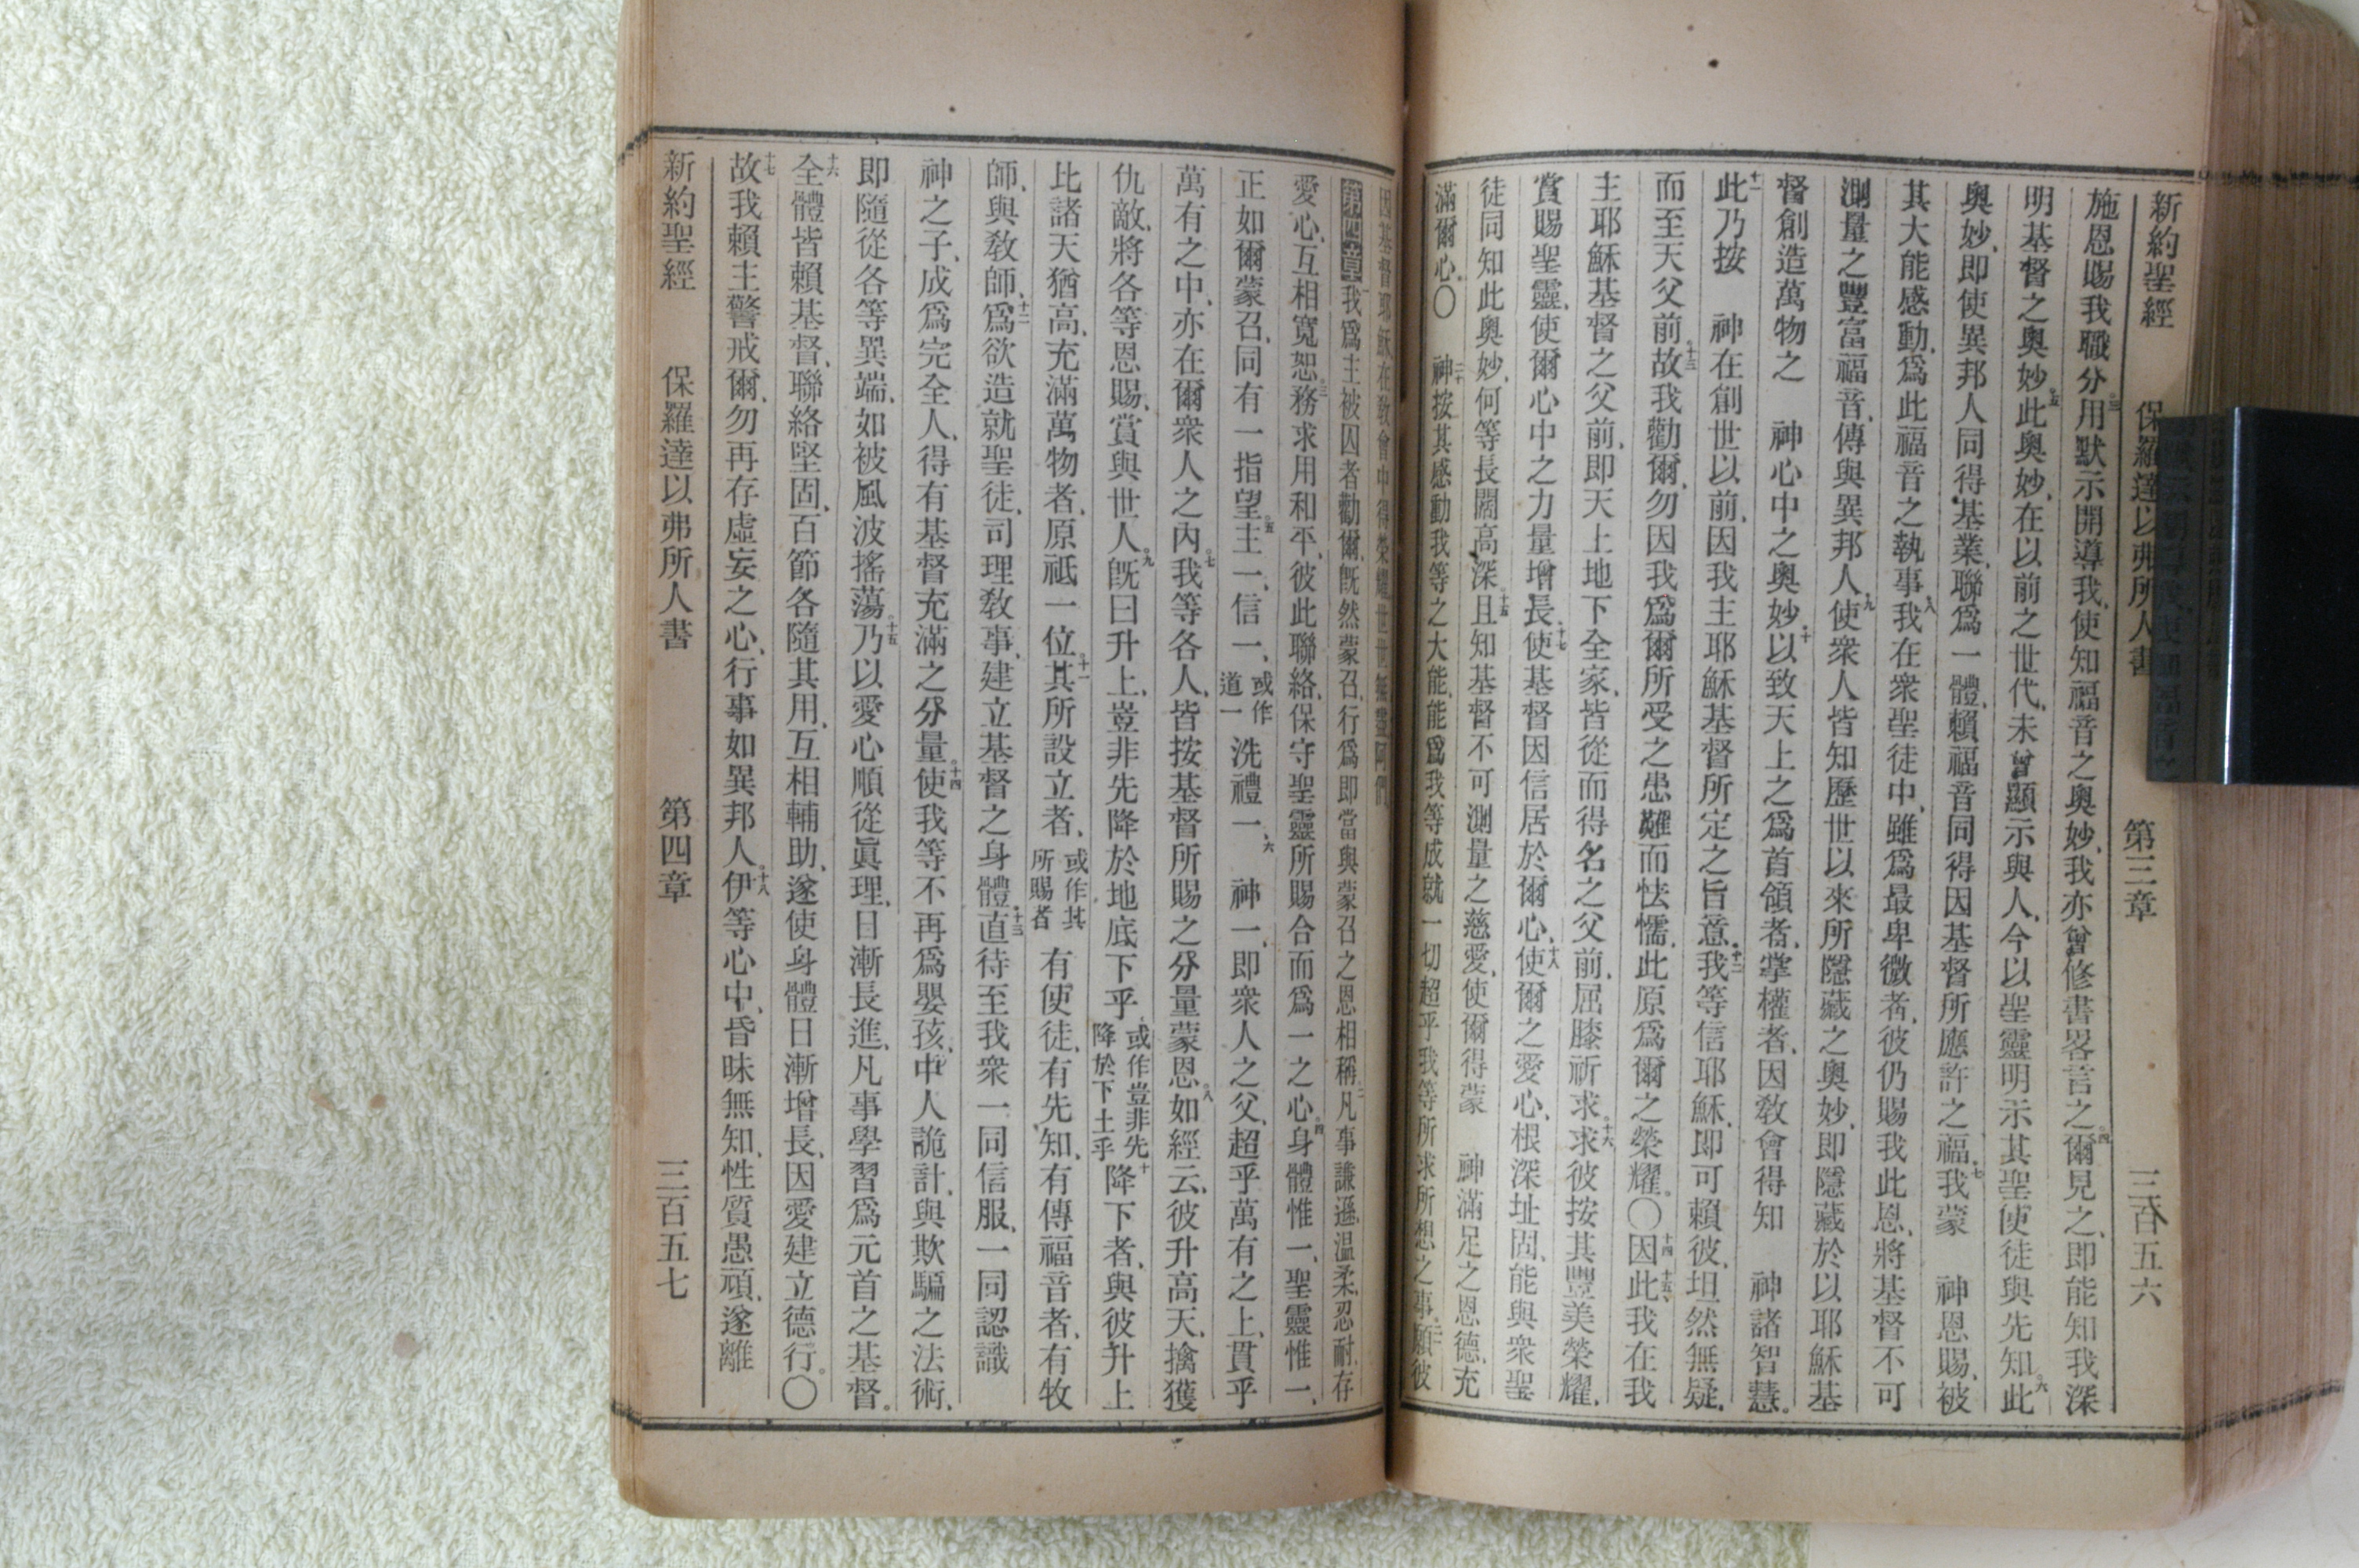 新約聖經 保羅達以弗所人書 第三章 三百五六
施恩賜我職分三用默示開導我、使知福音之奧妙、我亦曾修書畧言之四爾見之、即能知我深
明基督之奧妙五此奧妙、在以前之世代、未曾顯示與人、今以聖靈明示其聖使徒與先知六此
奧妙、即使異邦人同得基業、聯爲一體、賴福音同得因基督所應許之福七我蒙 神恩賜、被
其大能感動、爲此福音之執事八我在衆聖徒中、雖爲最卑微者、彼仍賜我此恩、將基督不可
測量之豐富福音、傳與異邦人九使衆人皆知歷世以來所隱藏之奧妙、即隱藏於以耶穌基
督創造萬物之 神心中之奧妙十以致天上之爲首領者、掌權者、因敎會得知 神諸智慧。
十一此乃按 神在創世以前、因我主耶穌基督所定之旨意十二我等信耶穌、即可賴彼、坦然無疑、
而至天父前十三故我勸爾、勿因我爲爾所受之患難而怯懦、此原爲爾之榮耀。〇十四因此十五我在我
主耶穌基督之父前、即天上地下全家、皆從而得名之父前、屈膝祈求十六求彼按其豐美榮耀、
賞賜聖靈、使爾心中之力量增長十七使基督因信居於爾心十八使爾之愛心、根深址固、能與衆聖
徒同知此奧妙、何等長闊高深十九且知基督不可測量之慈愛、使爾得蒙 神滿足之恩德、充
滿爾心。〇 二十神按其感動我等之大能、能爲我等成就一切超乎我等所求所想之事二一願彼
因基督耶穌、在敎會中得榮耀、世世無盡、阿們、
第四章一我爲主被囚者勸爾、旣然蒙召、行爲即當與蒙召之恩相稱二凡事謙遜、温柔、忍耐、存
愛心、互相寬恕三務求用和平、彼此聯絡、保守聖靈所賜合而爲一之心四身體惟一、聖靈惟一、
正如爾蒙召、同有一指望五主一、信一、或作道一洗禮一、六 神一、即衆人之父、超乎萬有之上、貫乎
萬有之中、亦在爾衆人之內七我等各人、皆按基督所賜之分量蒙恩八如經云、彼升高天、擒獲
仇敵、將各等恩賜、賞與世人九旣曰升上、豈非先降於地底下乎、或作豈非先降於下土乎十降下者、與彼升上
比諸天猶高、充滿萬物者、原祗一位十一其所設立者、或作其所賜者有使徒、有先知、有傳福音者、有牧
師、與敎師十二爲欲造就聖徒、司理敎事、建立基督之身體十三直待至我衆一同信服、一同認識
神之子、成爲完全人、得有基督充滿之分量十四使我等不再爲嬰孩、中人詭計、與欺騙之法術、
即隨從各等異端、如被風波搖蕩十五乃以愛心順從眞理、日漸長進、凡事學習爲元首之基督。
十六全體皆賴基督、聯絡堅固、百節各隨其用、互相輔助、遂使身體日漸增長、因愛建立德行。〇
十七故我賴主警戒爾、勿再存虛妄之心、行事如異邦人十八伊等心中、昏昧無知、性質愚頑、遂離
新約聖經 保羅達以弗所人書 第四章 三百五七